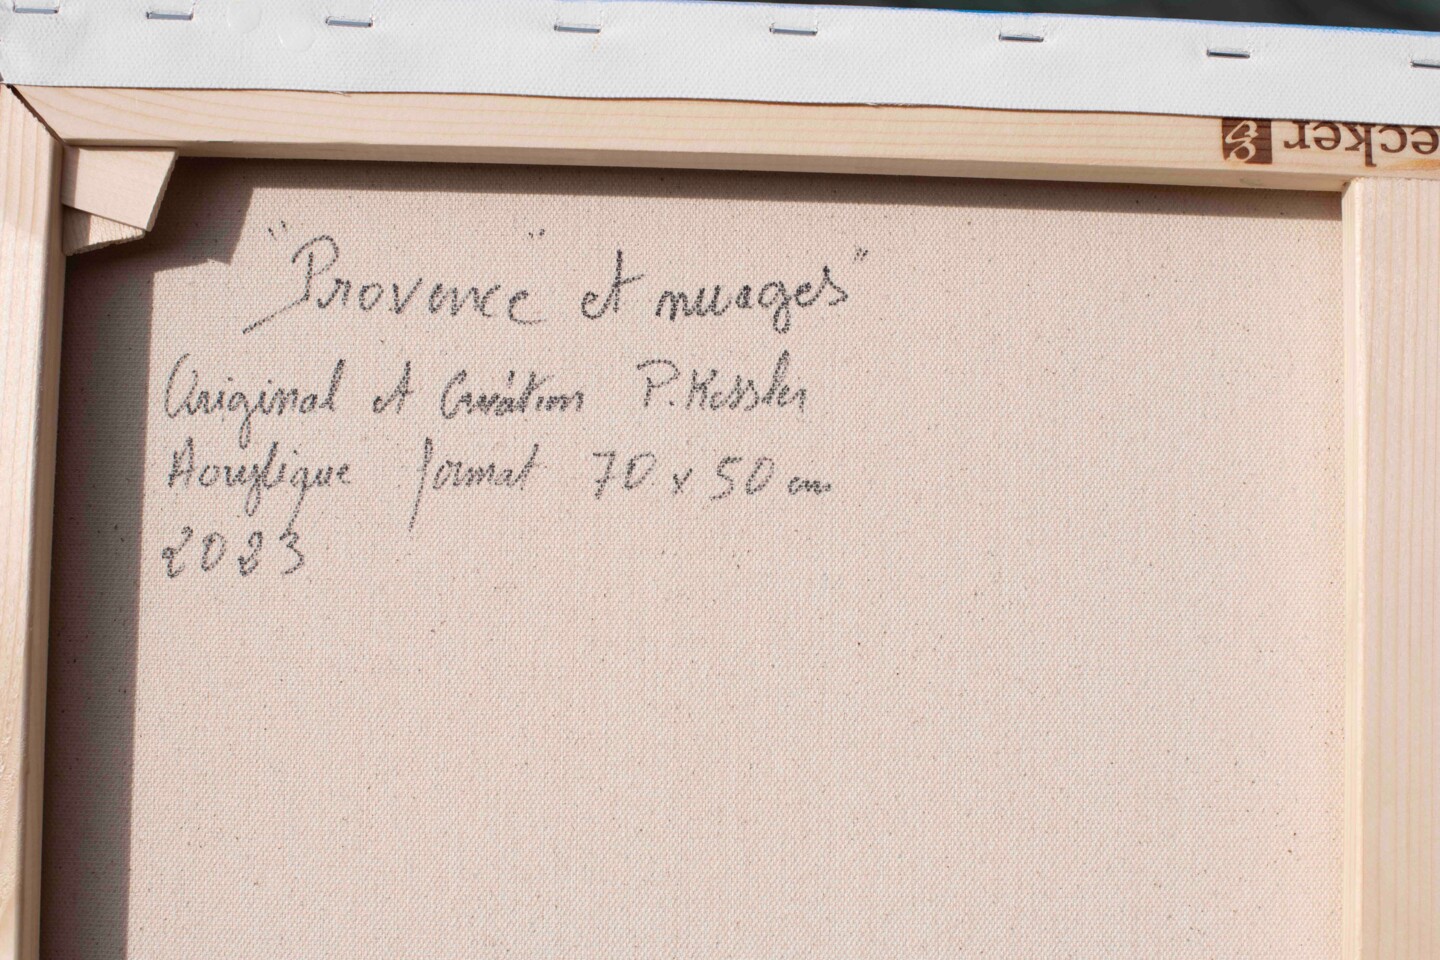 "Provence" et nuages"
Original et Création P. Kessler
Acrylique format 70 x 50 cm
2023
ecker